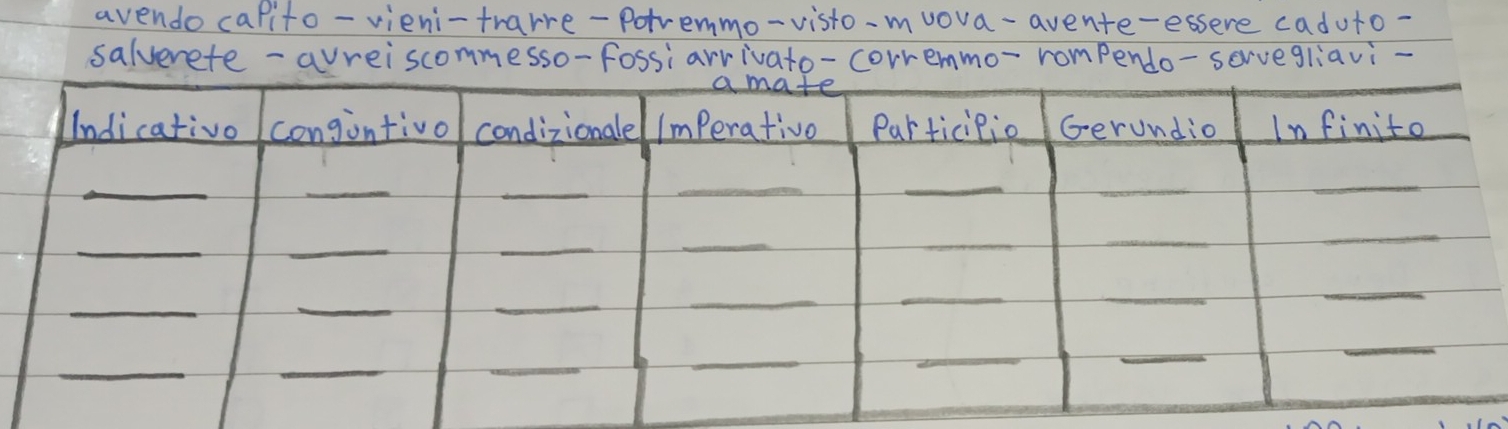 avendo capito - vieni - trarre - Potremmo - visto - muova - avente - essere caduto -
salverete - avrei scommesso - fossi arrivato - corremmo - rompendo - sorvegliavi -
amate
Indicativo congiuntivo condizionale Imperativo Participio Gerundio Infinito